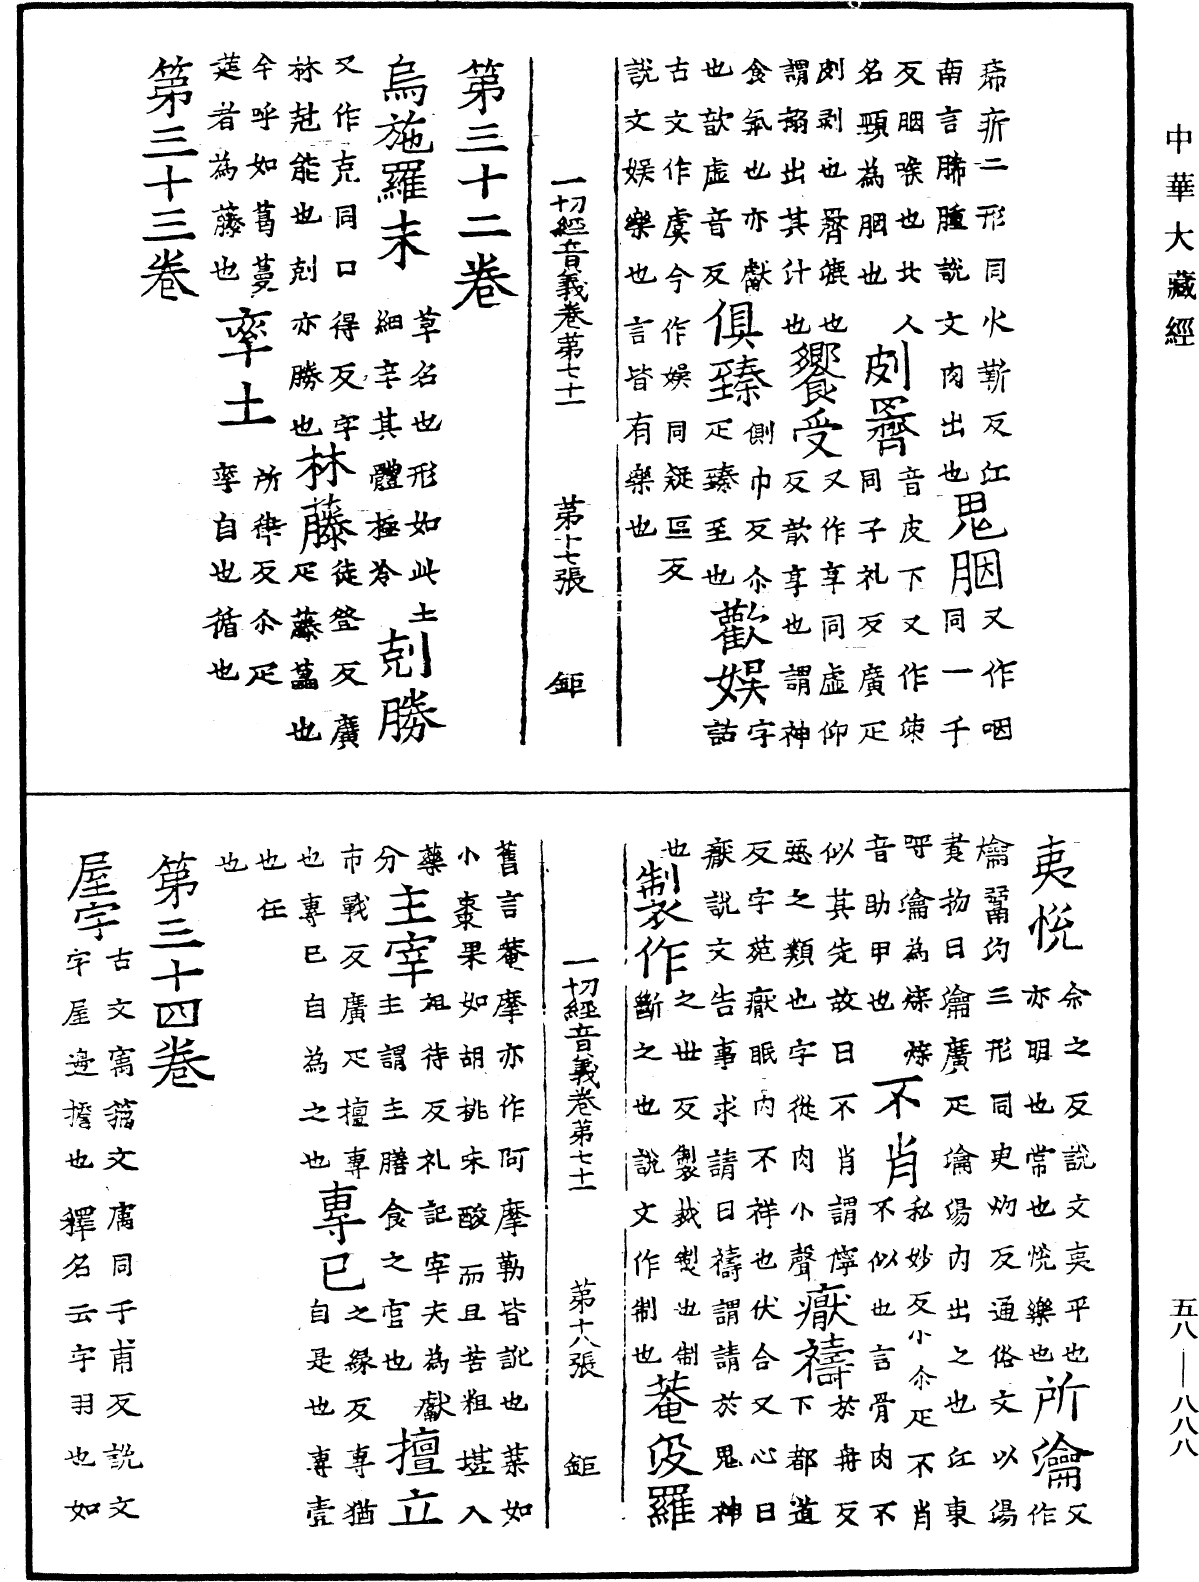 中華大藏經
㾙疻二形同火靳反江
南言胇腫說文肉出也咽
胭又作咽同一千
反胭喉也北人
名頸為胭也皮𠟃音皮下又作𠞰
同子礼反廣疋
剝也𠟃攠也
謂搦出其汁也饗受又作享同虛仰
反歆享也謂神
食氣也亦獻
也歆虛音反俱臻側巾反尒字
疋臻至也
古文作虞今作娛同疑區反歡娛詁
說文娛樂也言皆有樂也
一切經音義卷第七十一 第十七張 鉅
第三十二卷
烏施羅末草名也形如此土
細辛其體極冷剋勝
又作克同口得反字
林剋能也剋亦勝也林藤徒登反廣
疋藤藟也
今呼如葛蔓
莚者為藤也率土所律反尒疋
率自也循也
第三十三卷
夷悅余之反說文夷平也
亦明也常也悅樂也所瀹又作
𤅢鬻灼三形同史灼反通俗文以湯
煮物曰瀹廣疋瀹湯內出之也江東
呼瀹為煠煠不肖私妙反小尒疋不肖
不似也言骨肉不
音助甲也
似其先故曰不肖謂儜於舟反
惡之類也字從肉小聲厭禱下都道
反字苑厭眠內不祥也伏合又心曰
厭說文告事求請曰禱謂請於鬼神
也製作之世反製裁製也制
斷之也說文作制也菴沒羅
一切經音義卷第七十一 第十八張 鉅
舊言菴摩亦作阿摩勒皆訛也葉如
小棗果如胡桃味酸而且苦粗堪入
藥分主宰祖待反礼記宰夫為獻
主謂主膳食之官也擅立
市戰反廣疋擅專之緣反專猶
也專己自為之也專己自是也專壹
也任
也
第三十四卷
屋宇古文㝢籀文㢏同于甫反說文
宇屋邊簷也釋名云宇羽也如
五八—八八八